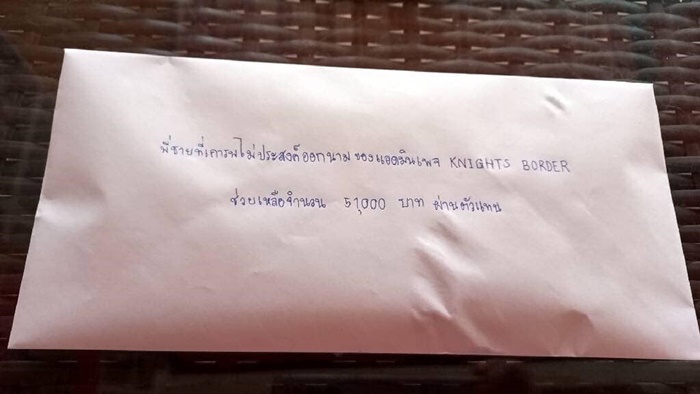 พี่ชายที่เคารพไม่ประสงค์ออกนามของแอดมินเพจ KNIGHTS BORDER
ช่วยเหลือจำนวน 51,000 บาท ผ่านตัวแทน